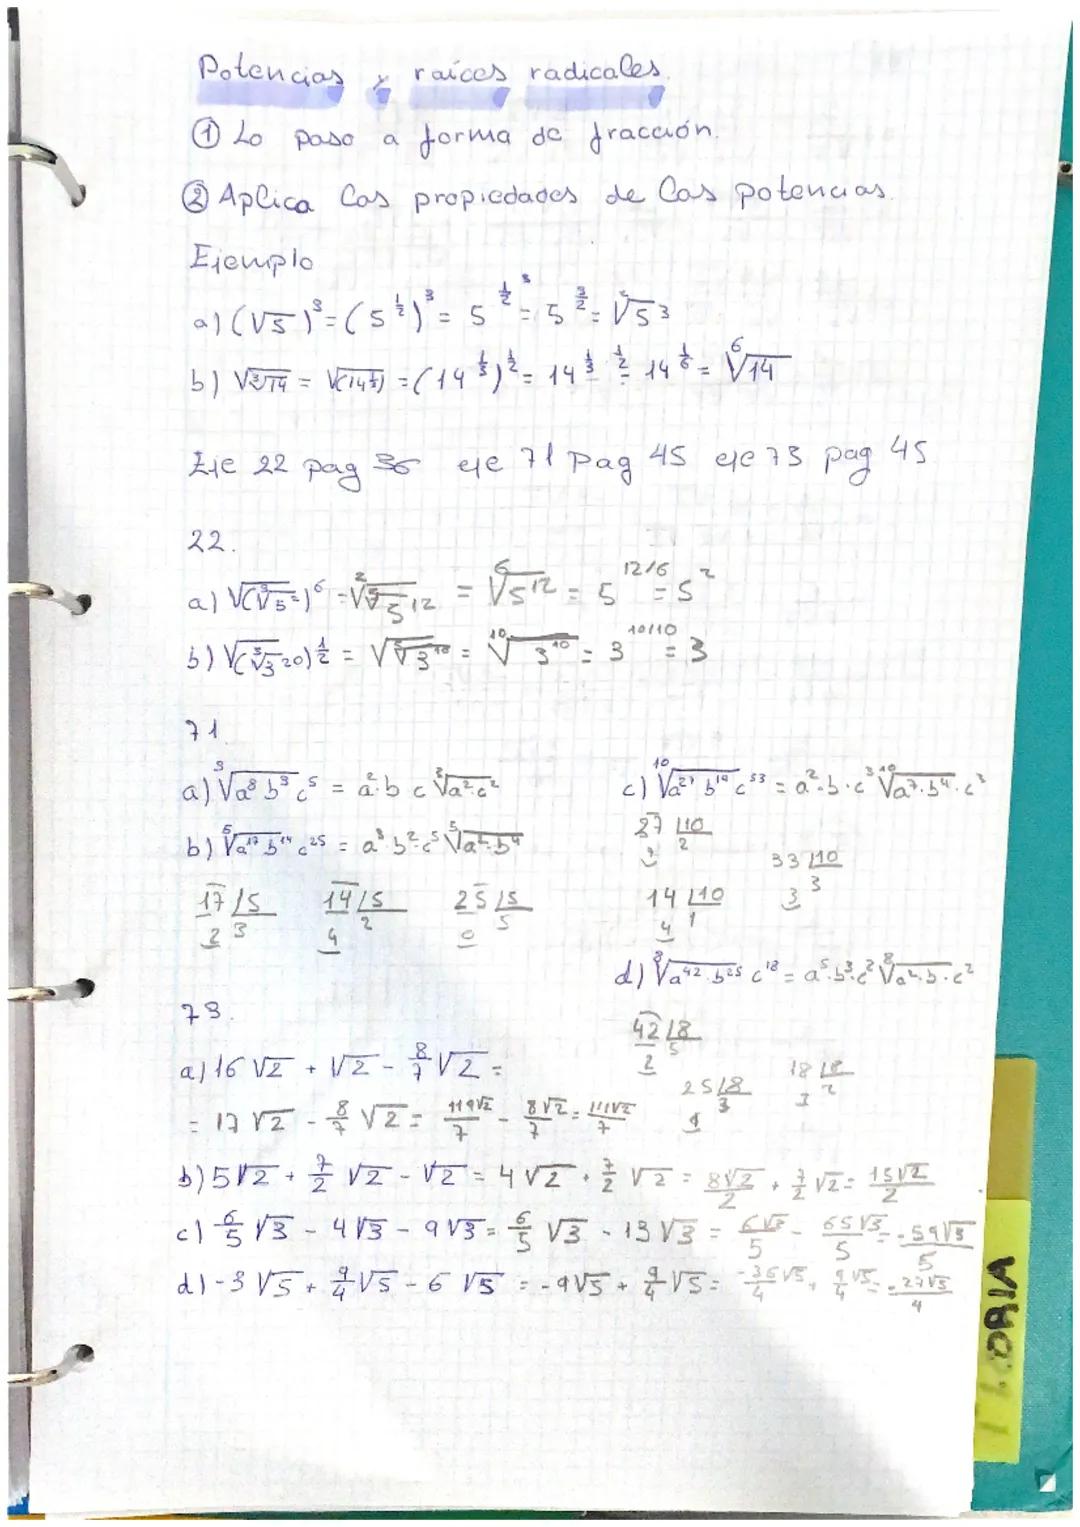 Potencias y raíces radicales.
① Lo paso a forma de fracción.
② Aplica las propiedades de las potencias.
Ejemplo
a) (√5)³ = (5^½)³ = 5^½·³ = 5^3/2 = ²√5³
b) √∛14 = √(14^⅓) = (14^⅓)^½ = 14^⅓·½ = 14^1/6 = ⁶√14
Eje 22 pag 36 eje 71 Pag 45 eje 73 pag 45
22.
= ⁶√5¹² = 5^12/6 = 5²
= ¹⁰√3¹⁰ = 3^10/10 = 3
71
a) ³√a⁸ b³ c⁵ = a²·b c ³√a²·c²
b) ⁵√a¹⁷ b¹⁴ c²⁵ = a³·b²·c⁵ ⁵√a²·b⁴
17 |5 14 |5 25 |5
2 3 4 2 0 5
c) ¹⁰√a²⁷ b¹⁴ c³³ = a²·b·c³ ¹⁰√a⁷·b⁴·c³
27 |10
2
33 |10
3 3
14 |10
4 1
d) ⁸√a⁴²·b²⁵ c¹⁸ = a⁵·b³·c² ⁸√a²·b·c²
42 |8
2 5
25 |8
1 3
18 |8
2
73.
a) 16√2 + √2 - 8/7 √2 =
= 17√2 - 8/7 √2 = 119√2/7 - 8√2/7 = 111√2/7
b) 5√2 + 7/2 √2 - √2 = 4√2 + 7/2 √2 = 8√2/2 + 7/2 √2 = 15√2/2
c) 6/5 √3 - 4√3 - 9√3 = 6/5 √3 - 13√3 = 6√3/5 - 65√3/5 = -59√3/5
d) -3√5 + 9/4 √5 - 6√5 = -9√5 + 9/4 √5 = -36√5/4 + 9√5/4 = -27√5/4